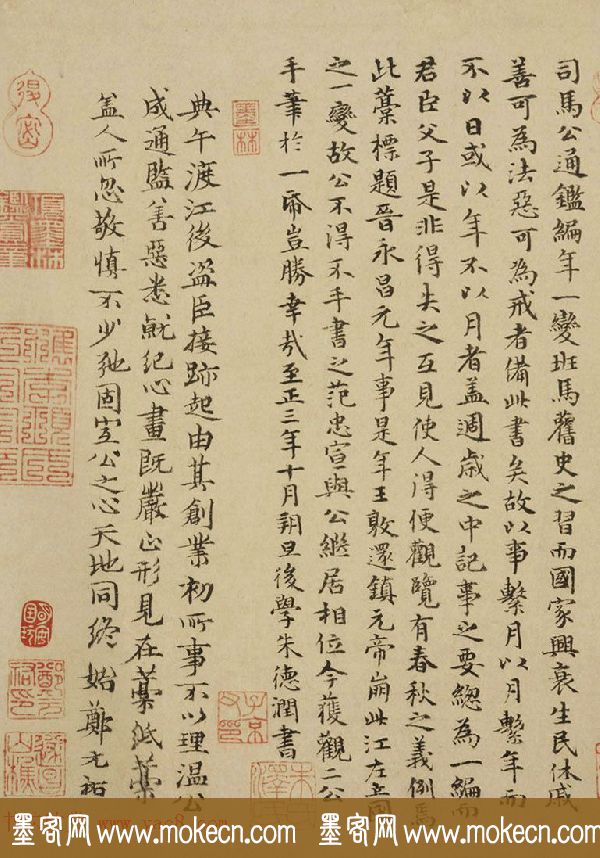 司馬公通鑑編年一變班馬舊史之習而國家興衰生民休戚
善可為法惡可為戒者備此書矣故以事繫月以月繫年而
不以日或以年不以月者盖週歲之中記事之要總為一編而
君臣父子是非得失之互見使人得便觀覽有春秋之義例焉
此藁標題晉永昌元年事是年王敦還鎮元帝崩此江左立國
之一變故公不得不手書之范忠宣與公繼居相位今獲觀二公
手筆於一帋豈勝幸哉至正三年十月朔旦後學朱德潤書
墨林
典午渡江後盗臣接跡起由其創業初所事不以理温公
成通監善惡悉就紀心畫既嚴正形見在藁紙藁
盖人所忽敬慎不少弛固宜公之心天地同終始鄭元祐
子京
墨客网 www.mokecn.com 墨客网 www.mokecn.com